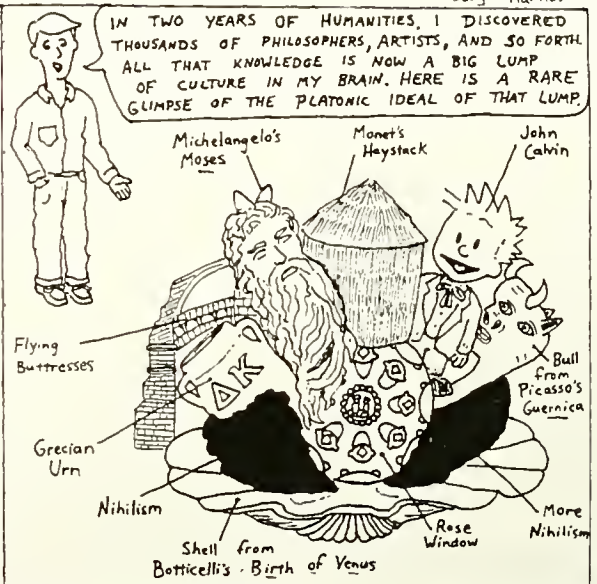 IN TWO YEARS OF HUMANITIES, I DISCOVERED
THOUSANDS OF PHILOSOPHERS, ARTISTS, AND SO FORTH.
ALL THAT KNOWLEDGE IS NOW A BIG LUMP
OF CULTURE IN MY BRAIN. HERE IS A RARE
GLIMPSE OF THE PLATONIC IDEAL OF THAT LUMP.
Michelangelo's
Moses
Monet's
Haystack
John
Calvin
Flying
Buttresses
ΔK
Bull
from
Picasso's
Guernica
Grecian
Urn
Nihilism
Rose
Window
More
Nihilism
Shell from
Botticelli's Birth of Venus